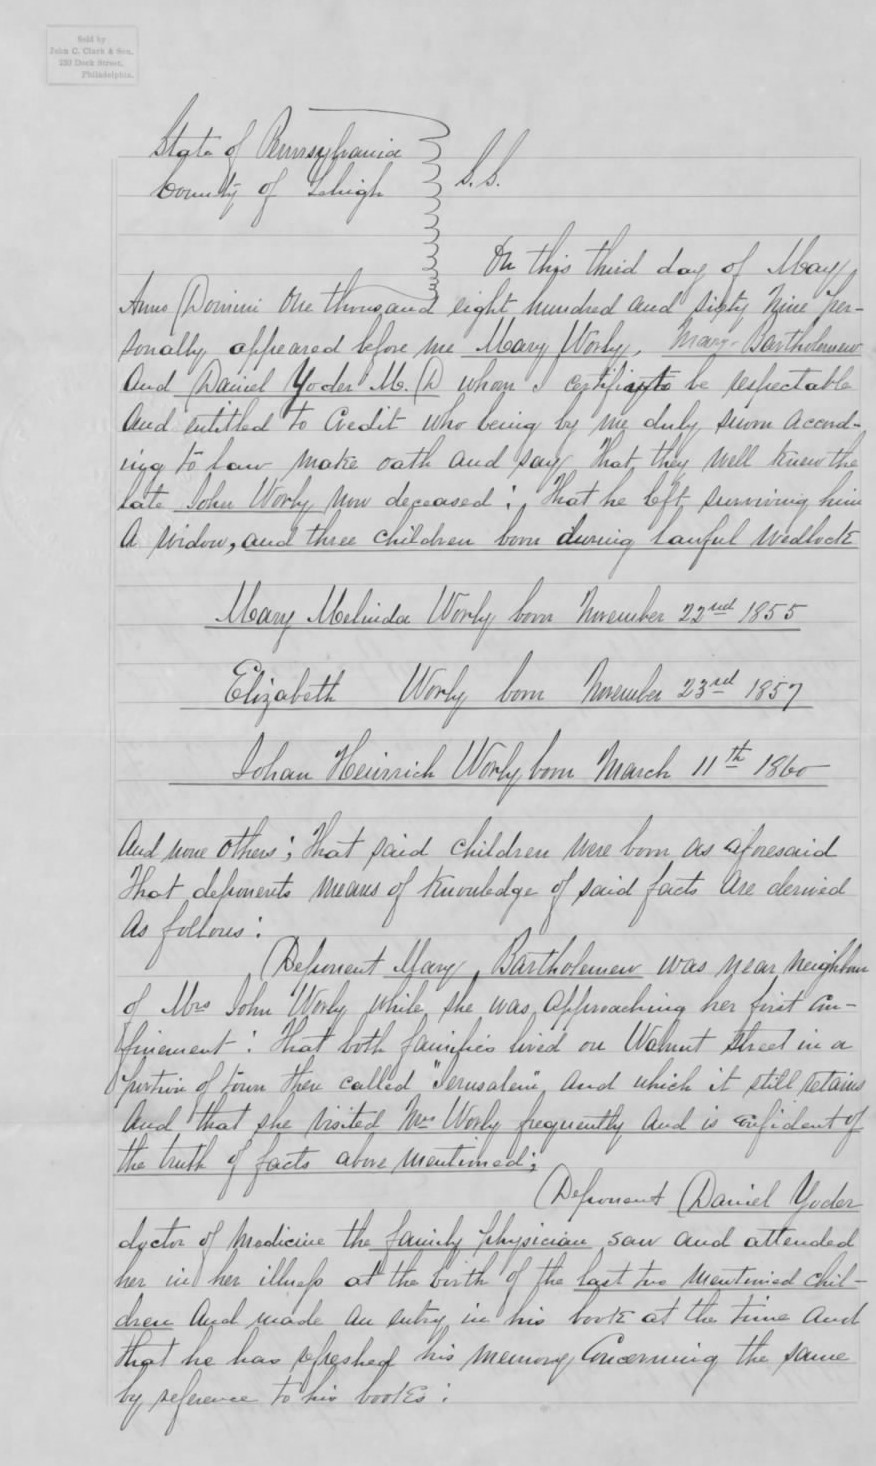 Sold by
John C. Clark & Son,
230 Dock Street,
Philadelphia.
State of Pennsylvania
County of Lehigh
S.S.
On this third day of May
Anno Domini One thousand eight hundred and sixty Nine per-
sonally appeared before me Mary Worly, Mary Bartholemew
And Daniel Yoder M. D whom I certify to be respectable
And entitled to Credit who being by me duly sworn accord-
ing to law make oath and say That they well knew the
late John Worly now deceased ; That he left surviving him
A widow, and three children born during lawful wedlock
Mary Melinda Worly born November 22nd 1855
Elizabeth Worly born November 23rd 1857
Johan Heinrich Worly born March 11th 1860
And none others ; That said children were born as aforesaid
That deponents means of Knowledge of said facts are derived
As follows :
Deponent Mary Bartholemew was near neighbour
of Mrs John Worly while she was approaching her first Con-
finement : That both families lived on Walnut Street in a
portion of town then called "Jerusalem" and which it still retains
And that she visited Mrs Worly frequently and is confident of
the truth of facts above mentioned ;
Deponent Daniel Yoder
doctor of Medicine the family physician saw and attended
her in her illness at the birth of the last two mentioned chil-
dren And made an entry in his book at the time and
that he has refreshed his memory Concerning the same
by reference to his books :